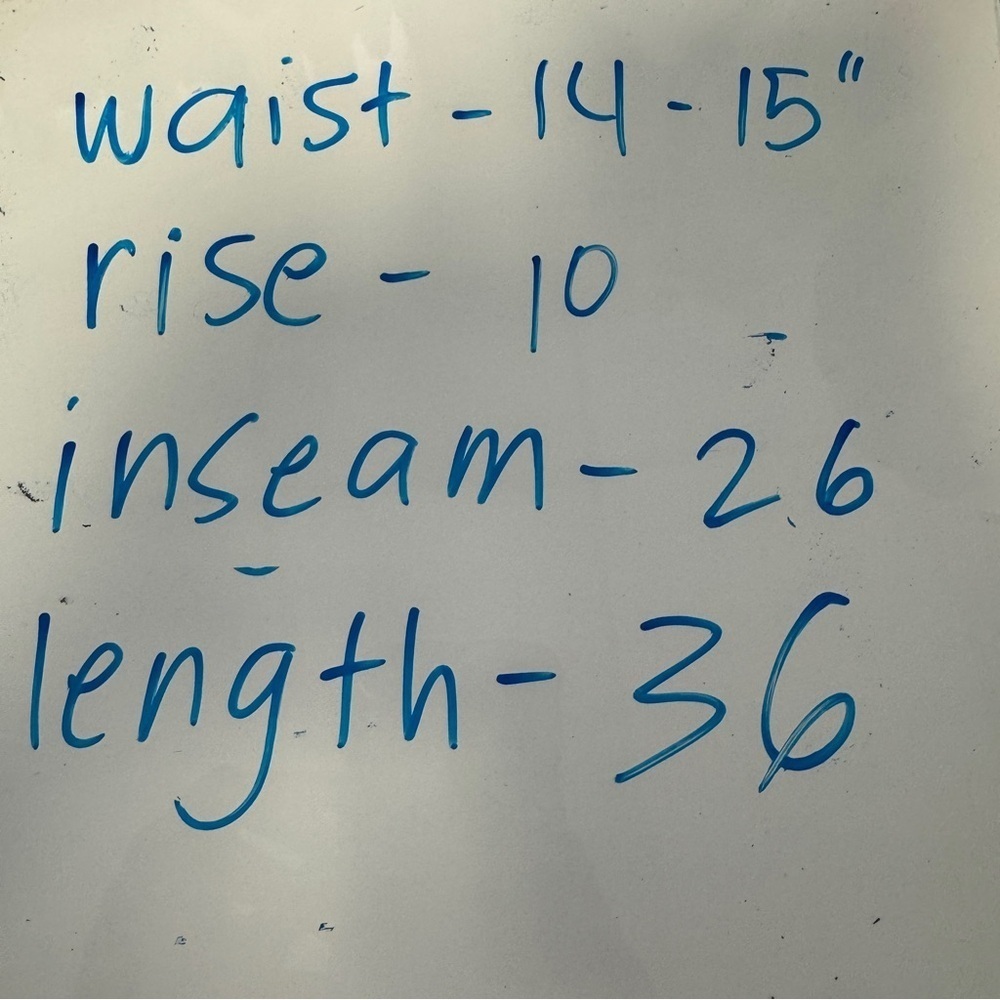 waist - 14 - 15"
rise - 10
inseam - 26
length - 36